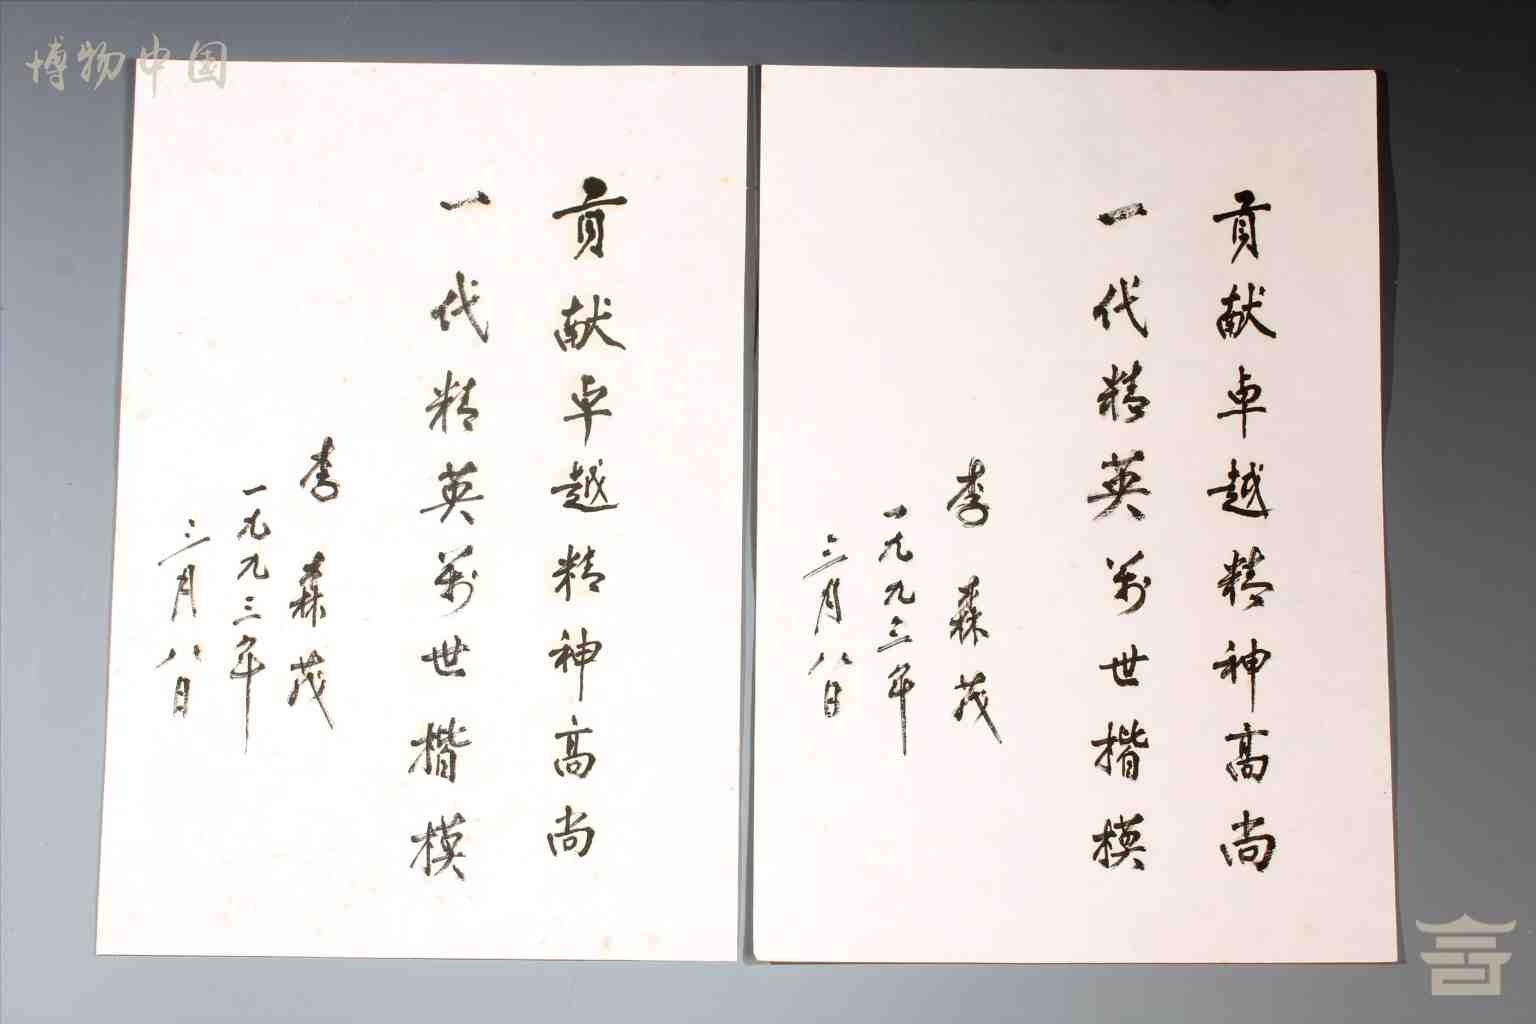 博物中国
贡献卓越精神高尚
一代精英万世楷模
李森茂
一九九三年
三月八日
贡献卓越精神高尚
一代精英万世楷模
李森茂
一九九三年
三月八日